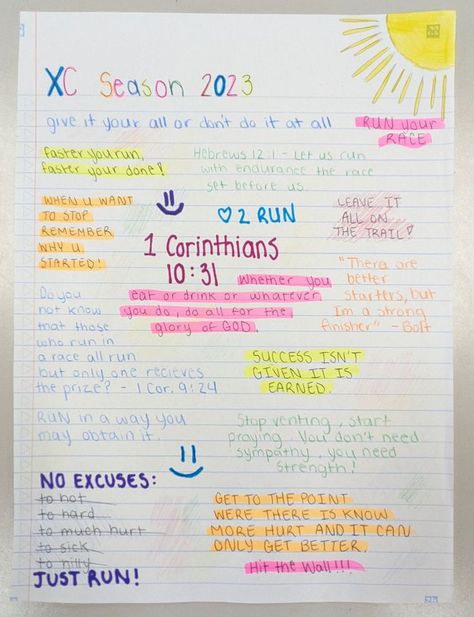 XC Season 2023
give it your all or don't do it at all
RUN your
RACE
faster you run,
faster your done!
Hebrews 12:1 - Let us run
with endurance the race
set before us.
WHEN U WANT
TO STOP
REMEMBER
WHY U
STARTED!
♡ 2 RUN
LEAVE IT
ALL ON
THE TRAIL!
1 Corinthians
10:31 Whether you
eat or drink or whatever
you do, do all for the
glory of GOD.
"Thera are
better
starters, but
Im a strong
finisher" - Bolt
Do you
not know
that those
who run in
a race all run
but only one recieves
the prize? - 1 Cor. 9:24
SUCCESS ISN'T
GIVEN IT IS
EARNED.
RUN in a way you
may obtain it.
Stop venting, start
praying. You don't need
sympathy, you need
Strength!
NO EXCUSES:
to hot
to hard
to much hurt
to sick
to hilly
JUST RUN!
GET TO THE POINT
WERE THERE IS KNOW
MORE HURT AND IT CAN
ONLY GET BETTER.
Hit the Wall!!!